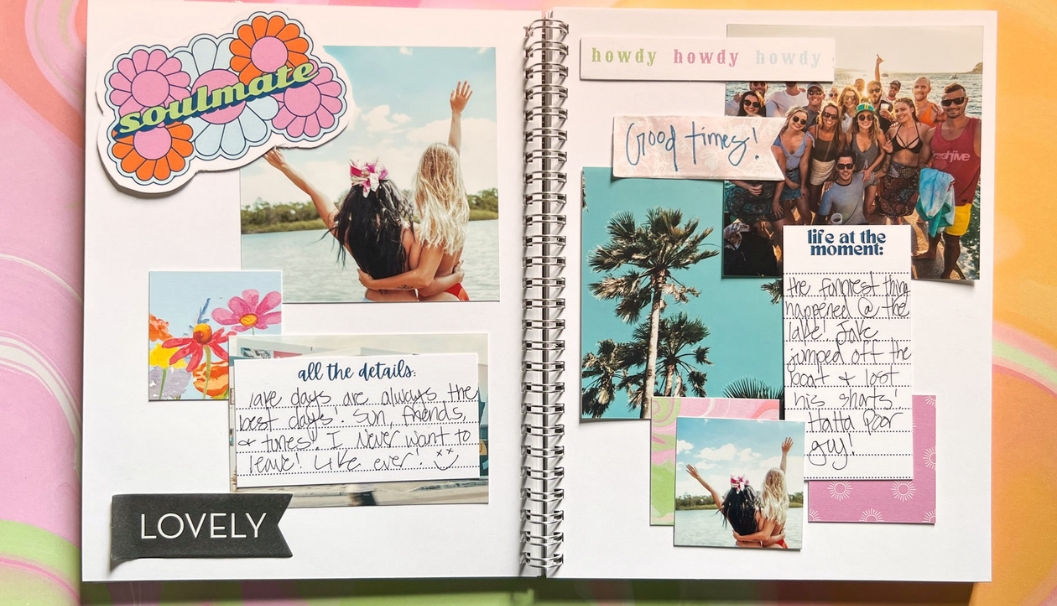 soulmate
all the details:
Lake days are always the
best days! Sun, friends,
& tunes! I Never want to
leave! Like ever!
LOVELY
howdy howdy howdy
Good times!
life at the
moment:
the funniest thing
happened @ the
lake! Jake
jumped off the
boat & lost
his shorts!
Hatta poor
guy!